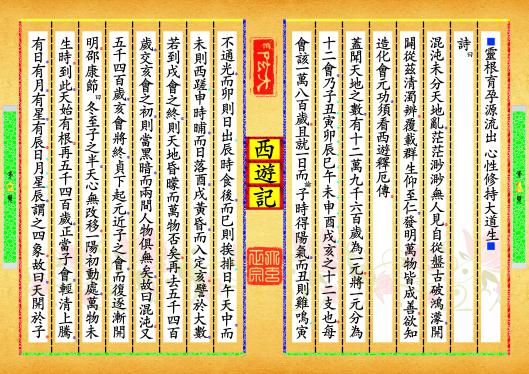 靈根育孕源流出 心性修持大道生
詩曰
混沌未分天地亂茫茫渺渺無人見自從盤古破鴻濛開
闢從茲清濁辨覆載群生仰至仁發明萬物皆成善欲知
造化會元功須看西遊釋厄傳
蓋聞天地之數有十二萬九千六百歲為一元將一元分為
十二會乃子丑寅卯辰巳午未申酉戌亥之十二支也每
會該一萬八百歲且就一日而論子時得陽氣而丑則雞鳴寅
西遊記
不通光而卯則日出辰時食後而巳則挨排日午天中而
未則西蹉申時晡而日落酉戌黃昏而人定亥譬於大數
若到戌會之終則天地昏曚而萬物否矣再去五千四百
歲交亥會之初則當黑暗而兩間人物俱無矣故曰混沌又
五千四百歲亥會將終貞下起元近子之會而復逐漸開
明邵康節曰冬至子之半天心無改移一陽初動處萬物未
生時到此天始有根再五千四百歲正當子會輕清上騰
有日有月有星有辰日月星辰謂之四象故曰天開於子